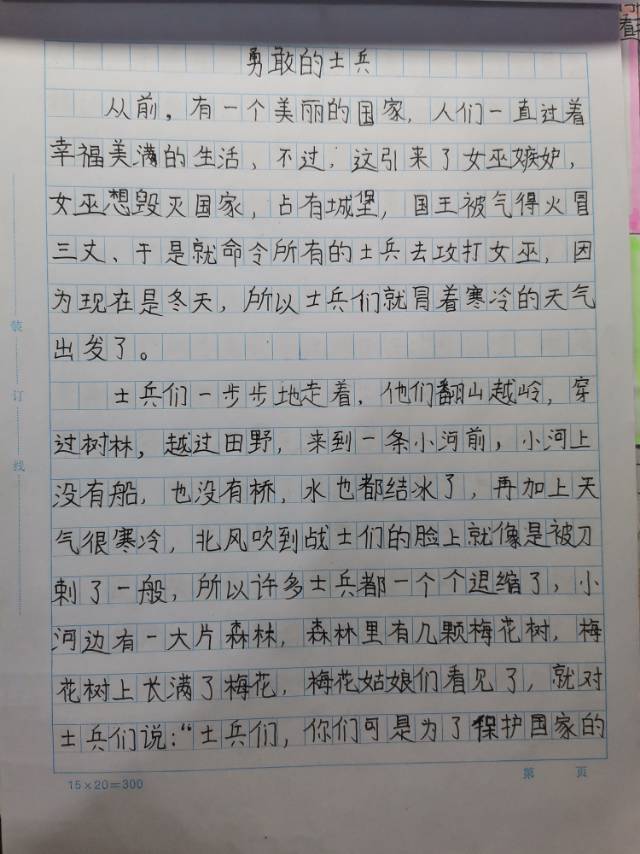 勇敢的士兵
从前，有一个美丽的国家，人们一直过着
幸福美满的生活，不过，这引来了女巫嫉妒，
女巫想毁灭国家，占有城堡，国王被气得火冒
三丈、于是就命令所有的士兵去攻打女巫，因
为现在是冬天，所以士兵们就冒着寒冷的天气
出发了。
士兵们一步步地走着，他们翻山越岭，穿
过树林，越过田野，来到一条小河前，小河上
没有船，也没有桥，水也都结冰了，再加上天
气很寒冷，北风吹到战士们的脸上就像是被刀
刺了一般，所以许多士兵都一个个退缩了，小
河边有一大片森林，森林里有几颗梅花树，梅
花树上长满了梅花，梅花姑娘们看见了，就对
士兵们说：“士兵们，你们可是为了保护国家的
15×20=300
第 页
装
订
线